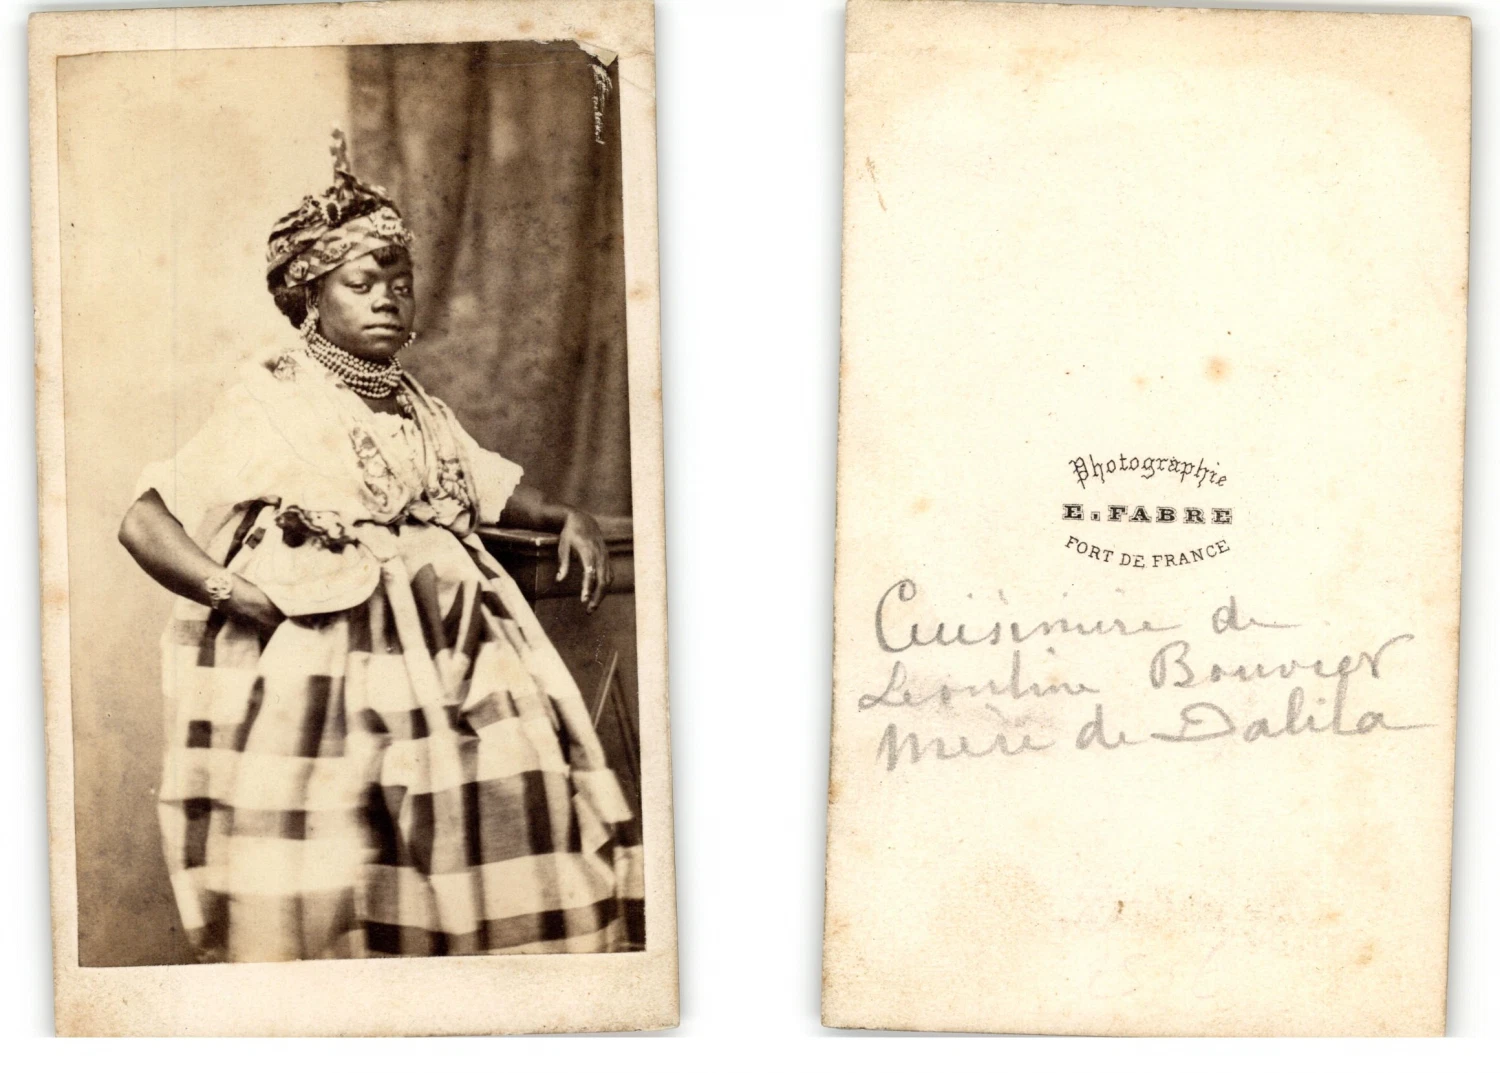 Photographie
E. FABRE
FORT DE FRANCE
Cuisinière de
Leontine Bouvier
Mère de Dalila